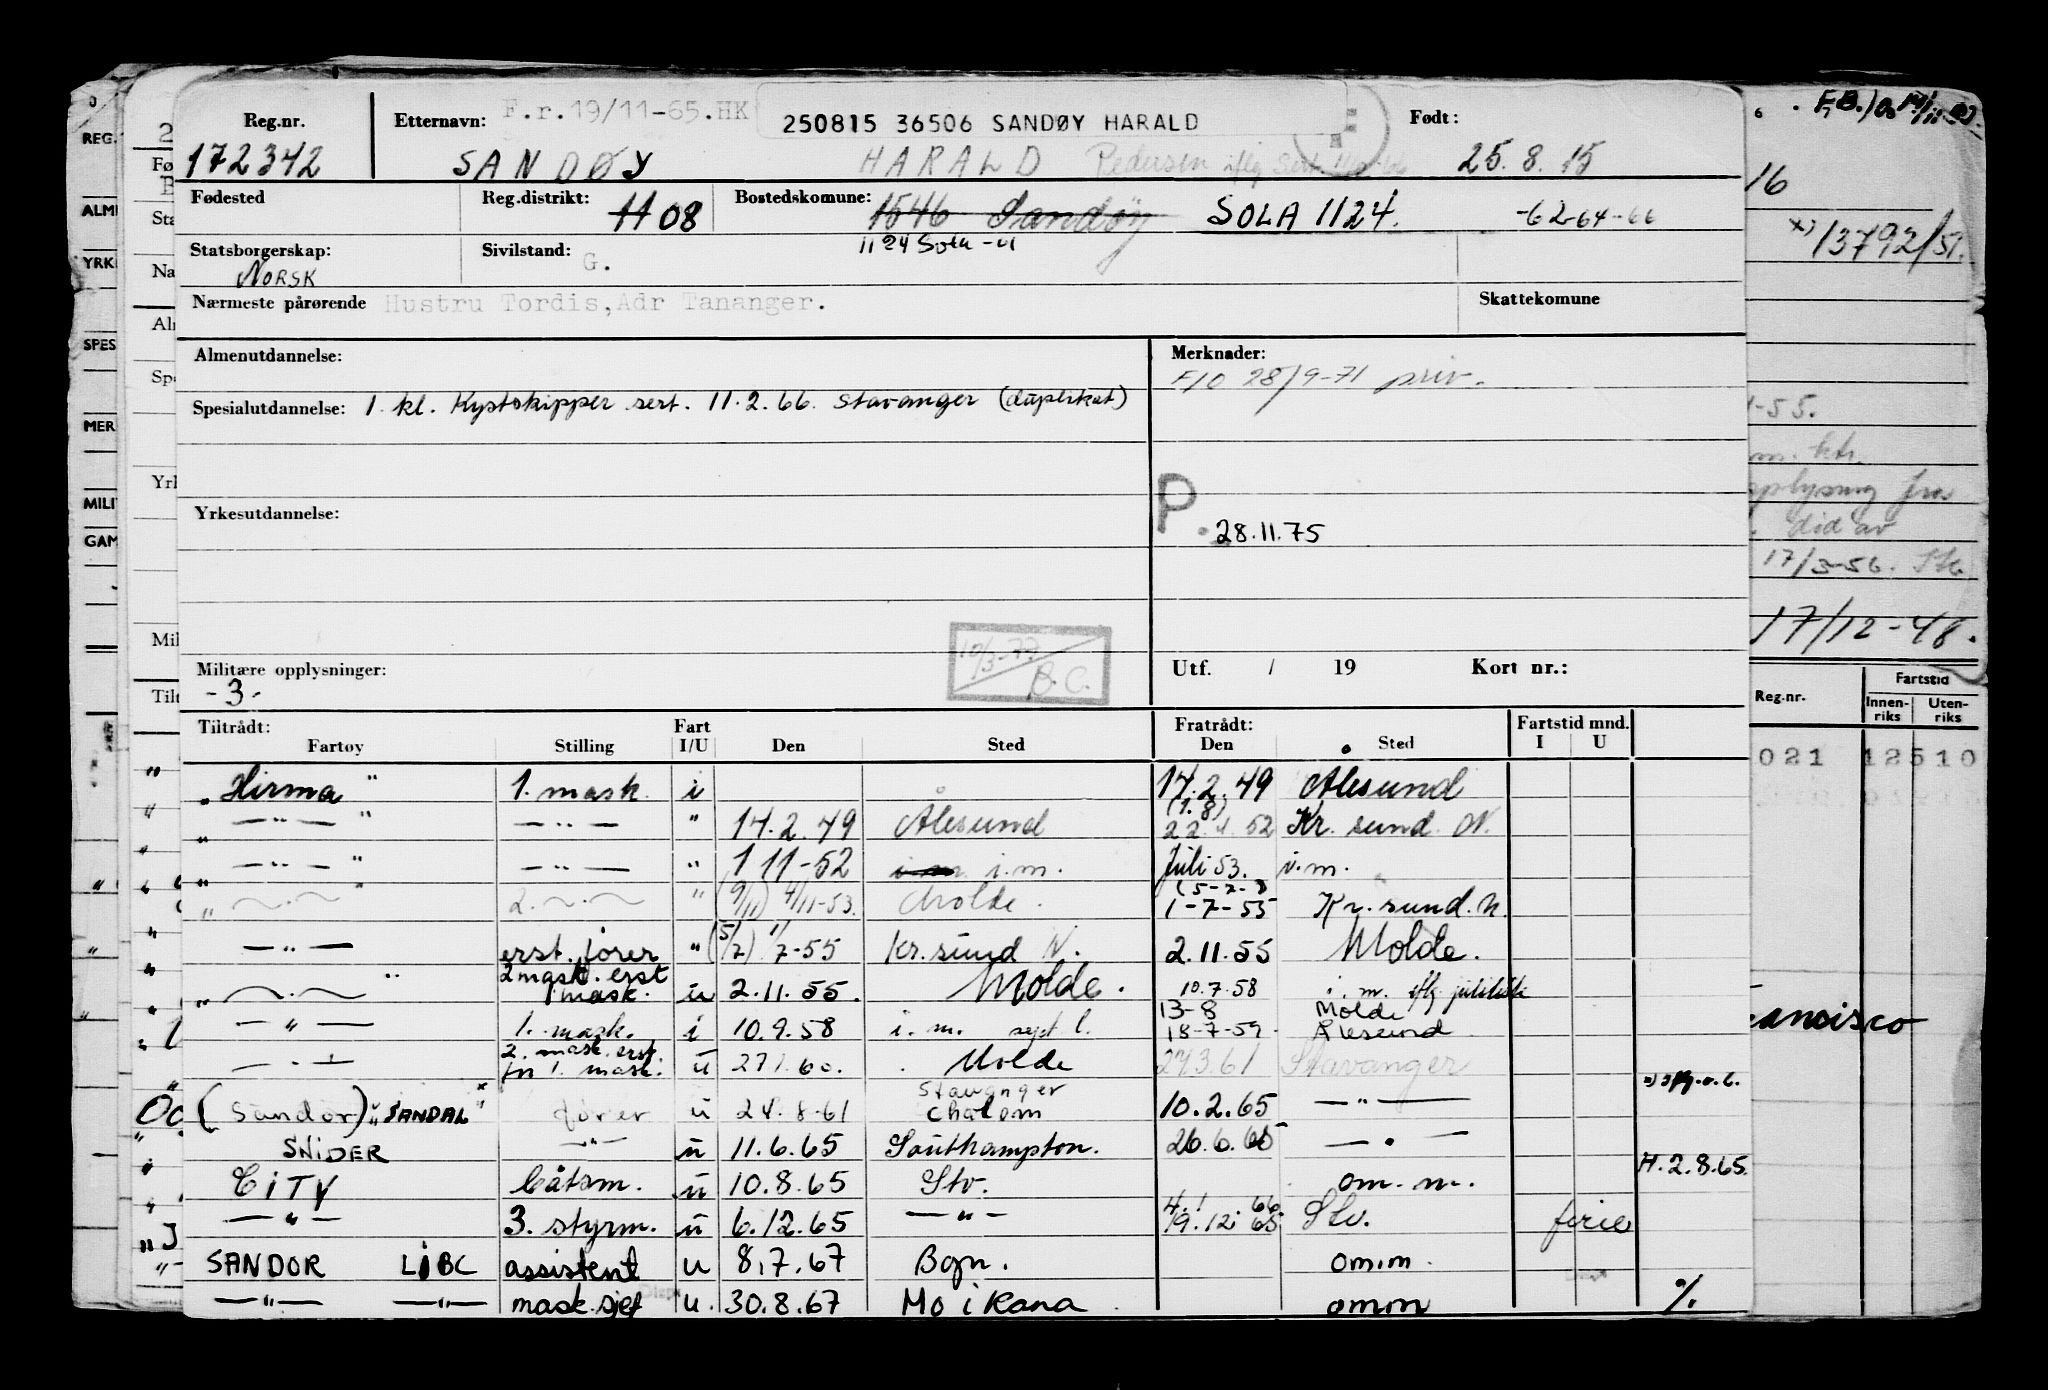 Reg.nr. Etternavn: F.r.19/11-65.HK 250815 36506 SANDØY HARALD Født:
172342 SANDØY HARALD Pedersen iflg 25.8.15
Fødested Reg.distrikt: 11 08 Bostedskomune: 1546 Sandøy SOLA 1124. -62-64-66
1124 Sola -
Statsborgerskap: NORSK Sivilstand: G.
Nærmeste pårørende Hustru Tordis,Adr Tananger. Skattekomune
Almenutdannelse: Merknader:
F/O 28/9-71 priv.
Spesialutdannelse: 1. kl. Kystskipper sert. 11.2.66. Stavanger (duplikat)
Yrkesutdannelse: P. 28.11.75
10/3-77 B.C.
Militære opplysninger: Utf. / 19 Kort nr.:
-3-
Tiltrådt: Fart Fratrådt: Fartstid mnd.
Fartøy Stilling I/U Den Sted Den Sted I U
"Hirma" 1. mask. i 14.2.49 Ålesund
— " — " — " — " 14.2.49 Ålesund (1.8) 22.4.52 Kr. sund. N.
— " — " — " — " 1 11-52 i.m. Juli 53. i.m.
" — " — 2. — " — " (9/11) 4/11-53. Molde. (5-7-) 1-7-55 Kr. sund. N.
— " — erst. fører " (5/7) 1/7-55 Kr. sund N. 2.11.55 Molde.
" — " — " 2 mask. erst 1 mask. u 2.11.55. Molde. 10.7.58 i. m. iflg.
— " — 1. mask. i 10.9.58 i. m. sept l. 13-8 18-7-59. Molde Ålesund
— " — 2. mask. erst. for 1. mask. u 27 1. 60. Molde 27.3.61 Stavanger
(Sandor) "SANDAL" fører u 24.8-61 Stavanger 10.2.65 — " —
SNIDER — " — u 11.6.65 Southampton. 26.6.65 — " —
CITY båtsm. u 10.8.65 Stv. om. m. H.2.8.65.
— " — 3. styrm. u 6.12.65 — " — 4.1 66 19.12. 65 Stv. ferie
SANDOR LIBC assistent u 8.7.67 Bgn. omm.
— " — — " — mask.sjef u. 30.8.67 Mo i Rana omm %
REG.
ALM
YRK
SPES
MER
MILI
GAM
Fø
Sta
Na
Alm
Spe
Yrk
Mil
Tilt
16
x) 13792/51.
-55.
m. ktr.
oplysning fra
. did av
17/3-56.
17/12-48.
Reg.nr. Fartstid
Innen-riks Uten-riks
021 12510
ancisco